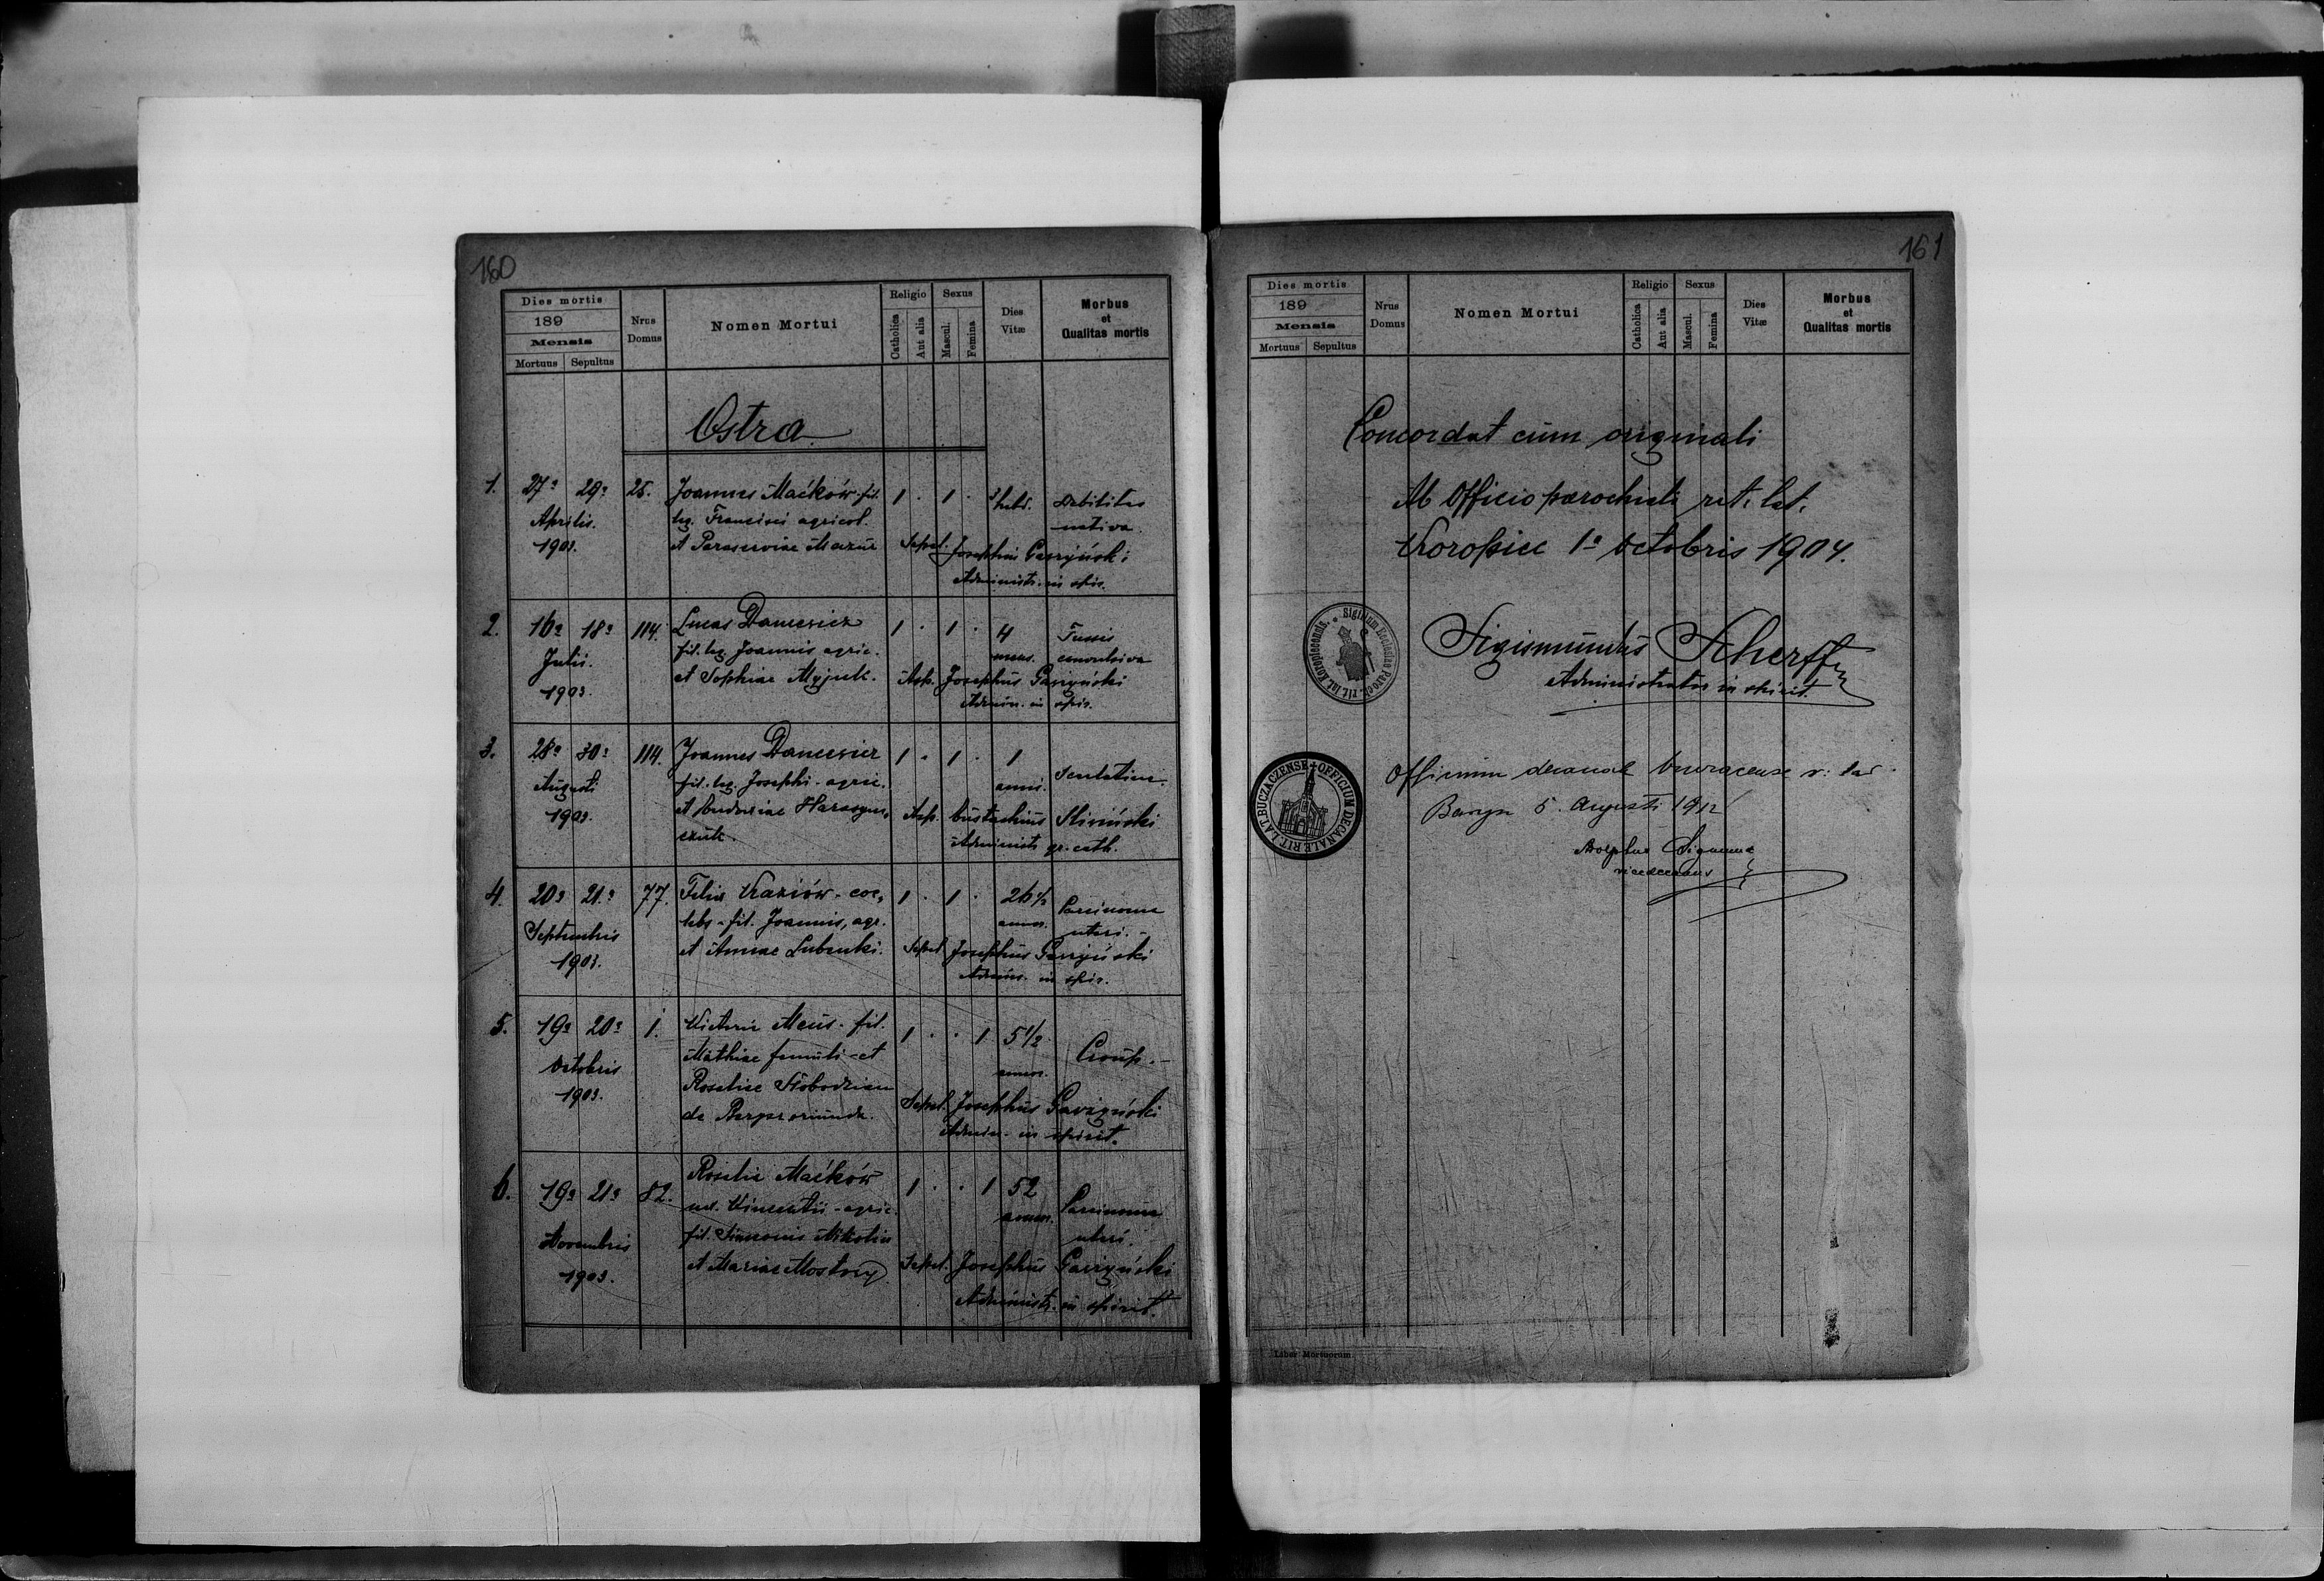 160
Dies mortis
189
Mensis
Mortuus Sepultus
Nrus Domus
Nomen Mortui
Religio
Catholica
Aut alia
Sexus
Mascul.
Femina
Dies Vitæ
Morbus
et
Qualitas mortis
Ostra
1. 27a 29a 25. Joannes Maćków fil. 1 . 1 . 3 hebd. Debilitas
Aprilis. leg. Francisci agricol. nativa.
1903. et Parasceviae Mazur Sepel. Josephus Gawzyński
Administr. in spir.
2. 16a 18a 114. Lucas Dancewicz 1 . 1 . 4 Tussis
Julii. fil. leg. Joannis agric. mens. convulsiva
1903. et Sophiae Asp. Josephus Gawzyński
Admin. in spir.
3. 28a 30a 114. Joannes Dancewicz 1 . 1 . 1
Augusti fil. leg. Josephi - agric. anni.
1903. et Asp. Eustachius Sliwiński
Administr gr. cath.
4. 20a 21a 77. Felix - coe, 1 . 1 . 26 1/2 Carcinoma
Septembris lebs - fil. Joannis, agr. annor. uteri.
1903. et Annae Sepel. Josephus Gawzyński
Admin. in spir.
5. 19a 20a 1. Victoria - fil. 1 . . 1 5 1/2 Croup. -
Octobris Mathiae famuli - et annor.
1903. Rosaliae Słobodzian Sepel. Josephus Gawzyński
de oriunda. Admin. in spirit.
6. 19a 21a 82. Rosalia Maćków 1 . . 1 52 Carcinoma
Novembris ux. Vincentii - agric. annor. uteri.
1903. fil. Simeonis
et Mariae Sepel. Josephus Gawzyński
Administr. in spirit.
161
Dies mortis
189
Mensis
Mortuus Sepultus
Nrus Domus
Nomen Mortui
Religio
Catholica
Aut alia
Sexus
Mascul.
Femina
Dies Vitæ
Morbus
et
Qualitas mortis
Concordat cum originali
Ab Officio parochiali rit. lat.
Koropiec 1a Octobris 1904.
Sigillum Ecclesiae Paroch. rit. lat. Koropiecensis.
Sigismundus Scherff
Administrator in spirit.
OFFICIUM DECANALE RIT. LAT. BUCZACZENSE
Officium decanale r. lat.
5. Augusti 1912
vicedecanus
Liber Mortuorum